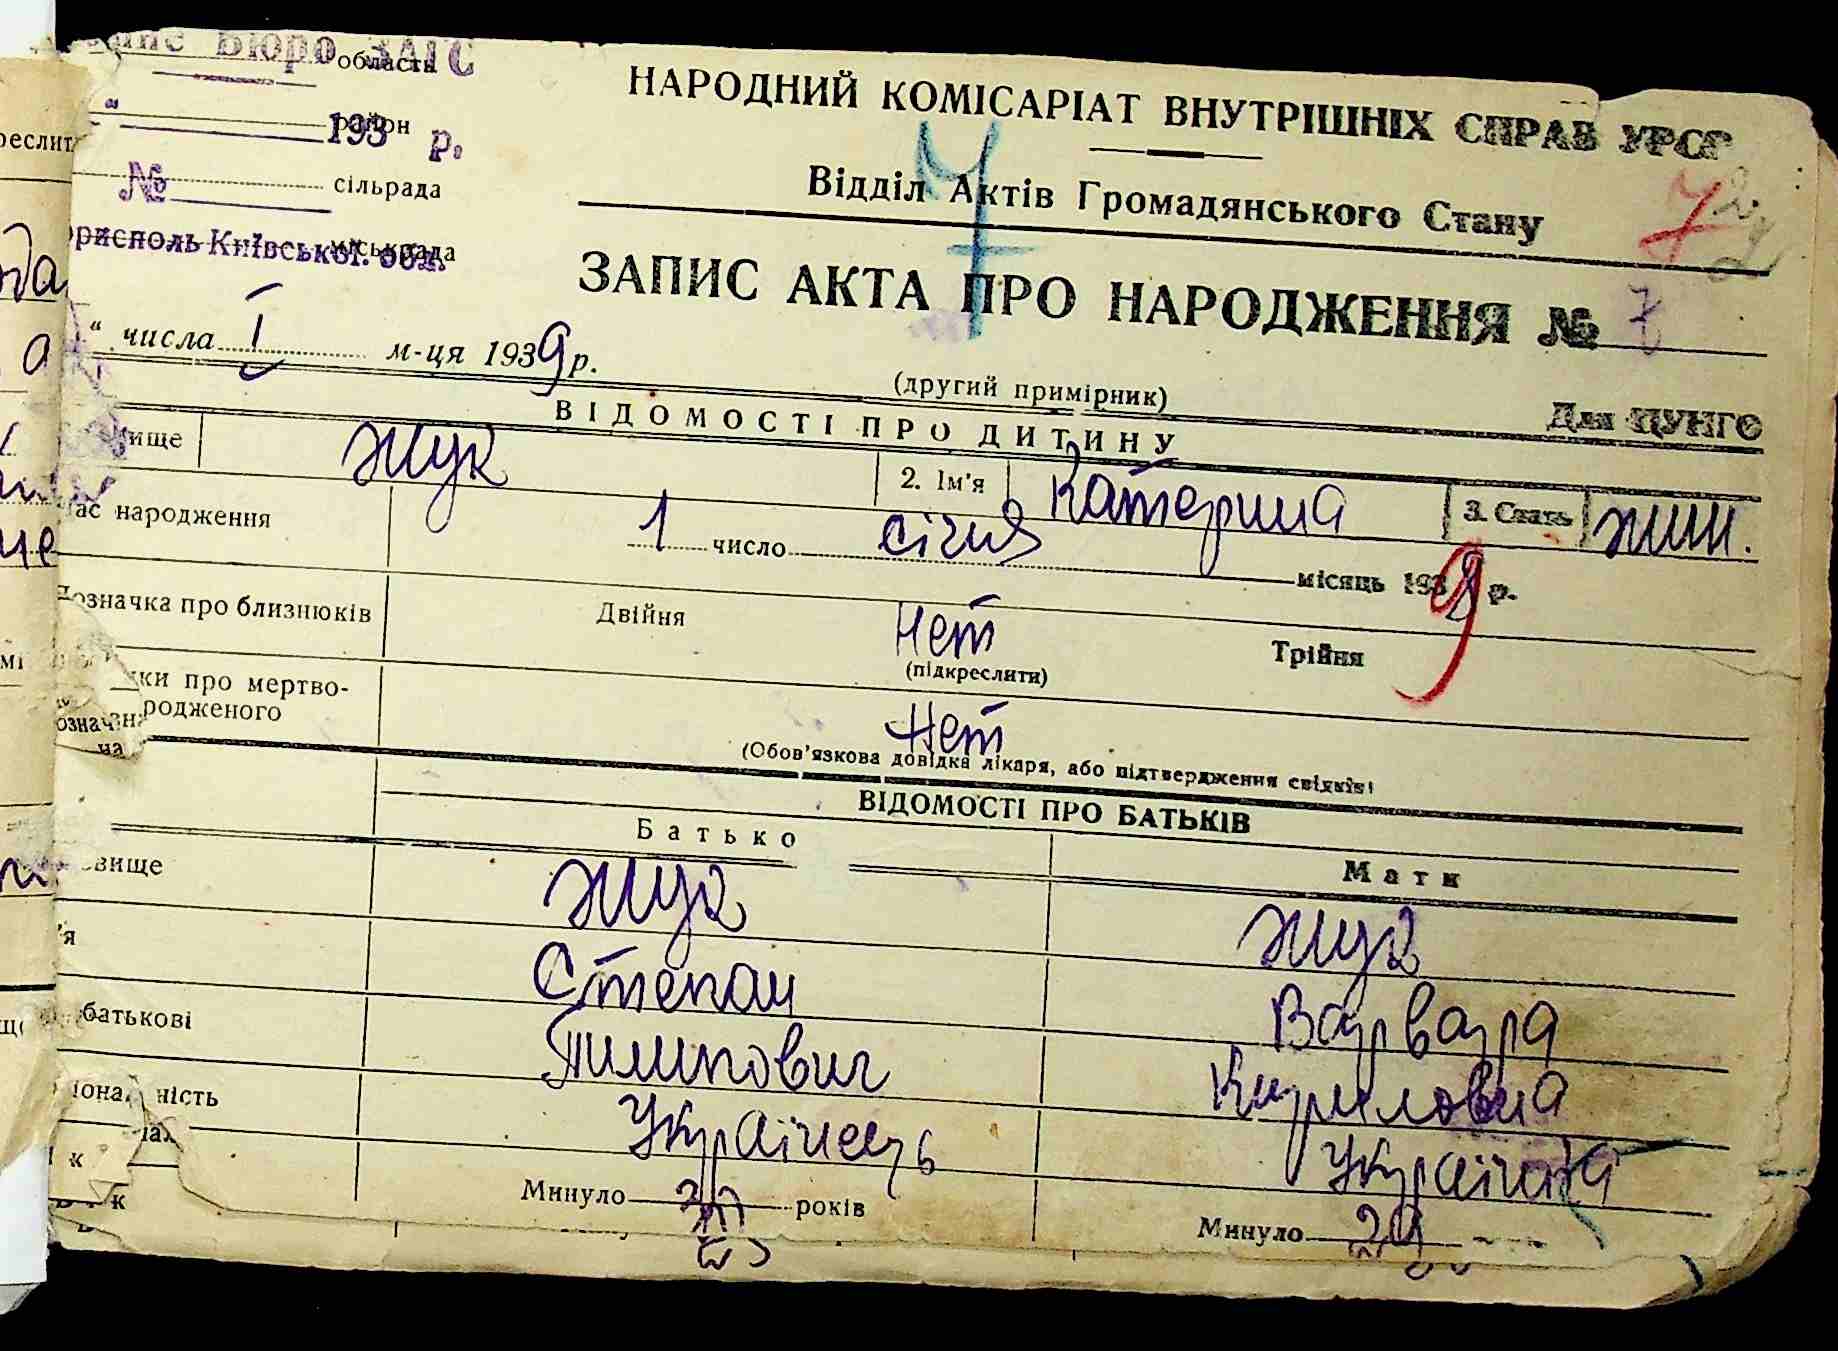 Бюро ЗАГС
область
193 р.
район
№ сільрада
міськрада
Київської обл.
НАРОДНИЙ КОМІСАРІАТ ВНУТРІШНІХ СПРАВ УРСР
Відділ Актів Громадянського Стану
7
ЗАПИС АКТА ПРО НАРОДЖЕННЯ № 7
“ числа I м-ця 1939 р.
(другий примірник)
Для ЦУНГО
ВІДОМОСТІ ПРО ДИТИНУ
ище Жук 2. Ім'я Катерина 3. Стать жін.
ас народження 1 число січня місяць 1939 р.
Позначка про близнюків Двійня Нет Трійня
(підкреслити)
ки про мертво-
родженого Нет
(Обов'язкова довідка лікаря, або підтвердження свідків)
ВІДОМОСТІ ПРО БАТЬКІВ
Батько Мати
вище Жук Жук
'я Степан Варвара
батькові Пилипович Кириловна
іональність Українець Українка
к Минуло років Минуло 29